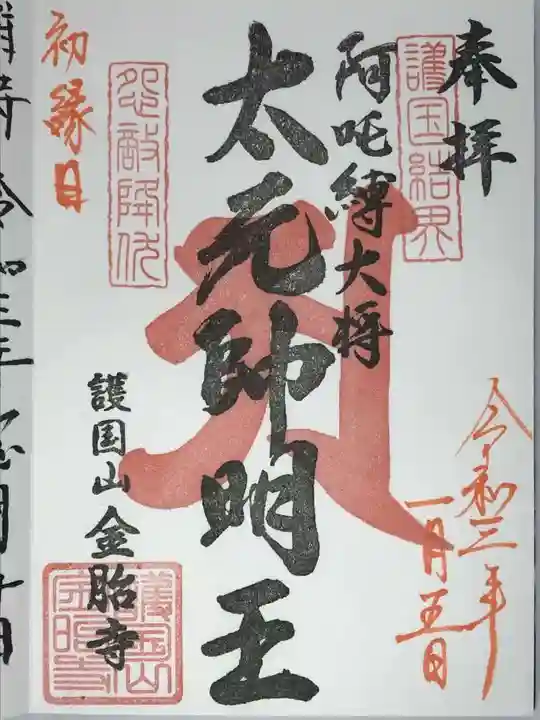 奉拝
護国結界
阿吒縛大将
太元帥明王
怨敵降伏
初縁日
護国山金胎寺
令和三年
一月五日
護国山
金胎寺